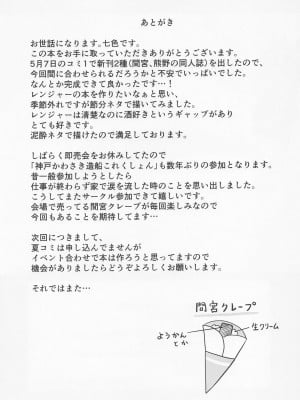 あとがき
お世話になります。七色です。
この本をお手に取っていただきありがとうございます。
5月7日のコミ1で新刊2種(間宮、熊野の同人誌)を出したので、
今回間に合わせられるだろうかと不安でいっぱいでした。
なんとか完成できて良かったです…!
レンジャーの本を作りたいなぁと思い、
季節外れですが節分ネタで描いてみました。
レンジャーは清楚なのに酒好きというギャップがあり
とても好きです。
泥酔ネタで描けたので満足しております。
しばらく即売会をお休みしてたので
「神戸かわさき造船これくしょん」も数年ぶりの参加となります。
昔一般参加しようとしたら
仕事が終わらず家で涙を流した時のことを思い出しました。
こうしてまたサークル参加できて嬉しいです。
会場で売ってる間宮クレープが毎回楽しみなので
今回もあることを期待してます…
次回につきまして、
夏コミは申し込んでませんが
イベント合わせで本は作ろうと思ってますので
機会がありましたらどうぞよろしくお願いします。
それではまた…
間宮クレープ
ようかん
とか
生クリーム